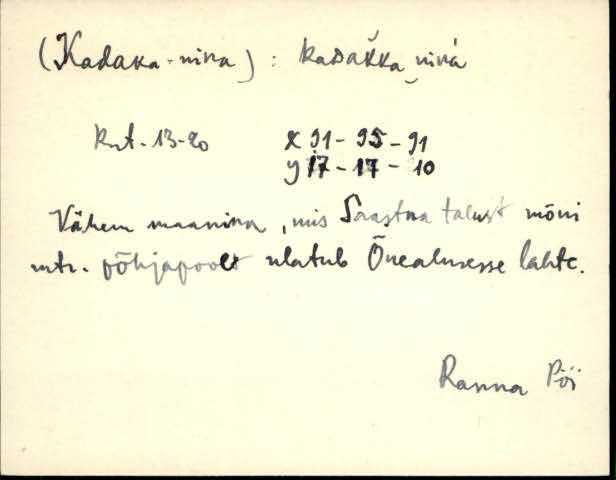 (Kadaka-nina) : kaDak̆ka nina
krt. 13-20 x 91 - 95 - 91
y 17 - 17 - 10
Vähem maanina, mis Saastna talust mõni
mtr. põhjapoolt ulatub Õnealusesse lahte.
Ranna Pöi